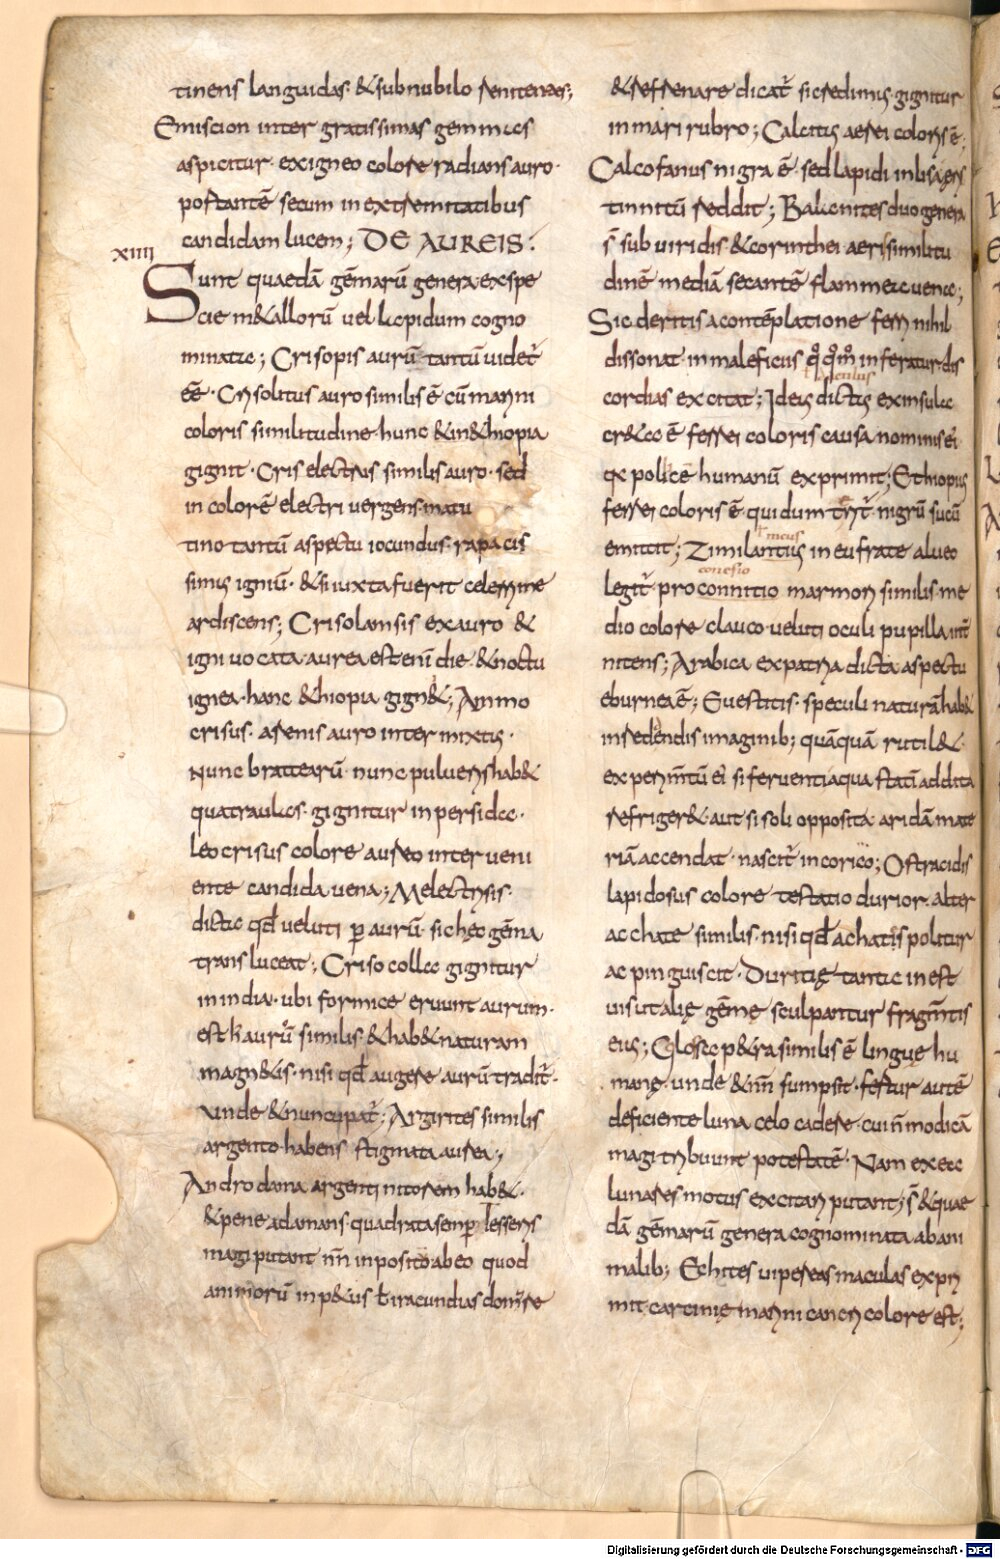 tinens languidas· & sub nubilo renitentes;
Emiscion inter gratissimas gemmas
aspicitur· ex igneo colore radians auro·
portantē secum in extremitatibus
candidam lucem; DE AUREIS:
XIIII
Sunt quaedā gēmarū genera ex spe
cie m&allorū vel lapidum cogno
minatae; Crisopis aurū tantū uidet̄
eē· Crisolitus auro similis ē cū marini
coloris similitudine· hunc &in&hiopia
gignit· Cris electrus similis auro· sed
in colorē electri vergens· matu
tino tantū aspectu iocundus· rapacis
simus igniū· & si iuxta fuerit celerrime
ardiscens; Crisolamsis ex auro &
igni uocata· aurea est eni die· & noctu
ignea· hanc &hiopia gign&; Ammo
crisus· arenis auro inter mixtis·
Nunc brattearū· nunc pulveris hab&
quatraulas· gignitur in persidae·
Leocrisus colore aureo inter veni
ente candida vena; Melectrisis·
dicta qđ veluti p aurū· sic hęc gēma
transluceat; Crisocolla gignitur
in india· ubi formicę eruunt aurum·
est h̄ aurū similis· & hab& naturam
magn&is· nisi qđ augere aurū tradit̄·
unde & nuncupat̄; Argirites similis
argento habens stigmata aurea;
Androdama argenti nitorem hab&·
& pene adamans quadrata semp tesseris
magi putant nm̄ inposito ab eo quod
animorū inp&us ł iracundias domare
& refrenare dicat̄ sic redimis· gignitur
in mari rubro; Calcitis aerei coloris ē·
Calcofanus nigra ē· sed lapidi inlisa aeris
tinnitū reddit; Balanites duo genera
s̄ sub uiridis· & corinthei aeris similitu
dinē mediā secantē flammea vena;
Sideritis a contēplatione ferri nihil
dissonat· in maleficiis q̄ q̄m̄ inferatur dis
cordias excitat; Ideus dictis ex insula
cr&ae ē ferrei coloris causa nominis ei
qa policē humanū exprimit; Ethiopus
ferrei coloris ē· qui dum terit̄ nigrū sucū
emittit; Zimilantus in eufrate alveo
conesio
legit̄· proconnitio marmori similis· me
dio colore glauco veluti oculi pupilla int̄
nitens; Arabica ex patria dicta aspectu
eburnea ē; Suestitis· speculi naturā hab&
in reddendis imaginib; quāquā rutil&·
experim̄tū ei si ferventi aqua statī addita
refriger&· aut si soli opposita aridā mate
riā accendat· nascit̄ in corico; Ostracidis
lapidosus colore testatio durior· alter
acchate similis· nisi qđ achatis politur
ac pinguiscit· Duritię tantae inest
vis ut alię gēmę sculpantur fragm̄tis
eius; Glosa p&ra similis ē linguę hu
manę· unde & nm̄ sumpsit· fertur autē
deficiente luna celo cadere· cui n̄ modicā
magi tribuunt potestatē· Nam ex ea
lunares motus excitari putant; s̄ & quae
dā gēmarū genera cognominata ab ani
malib; Echites vipereas maculas expri
mit· carcinię marini cancri colore est;